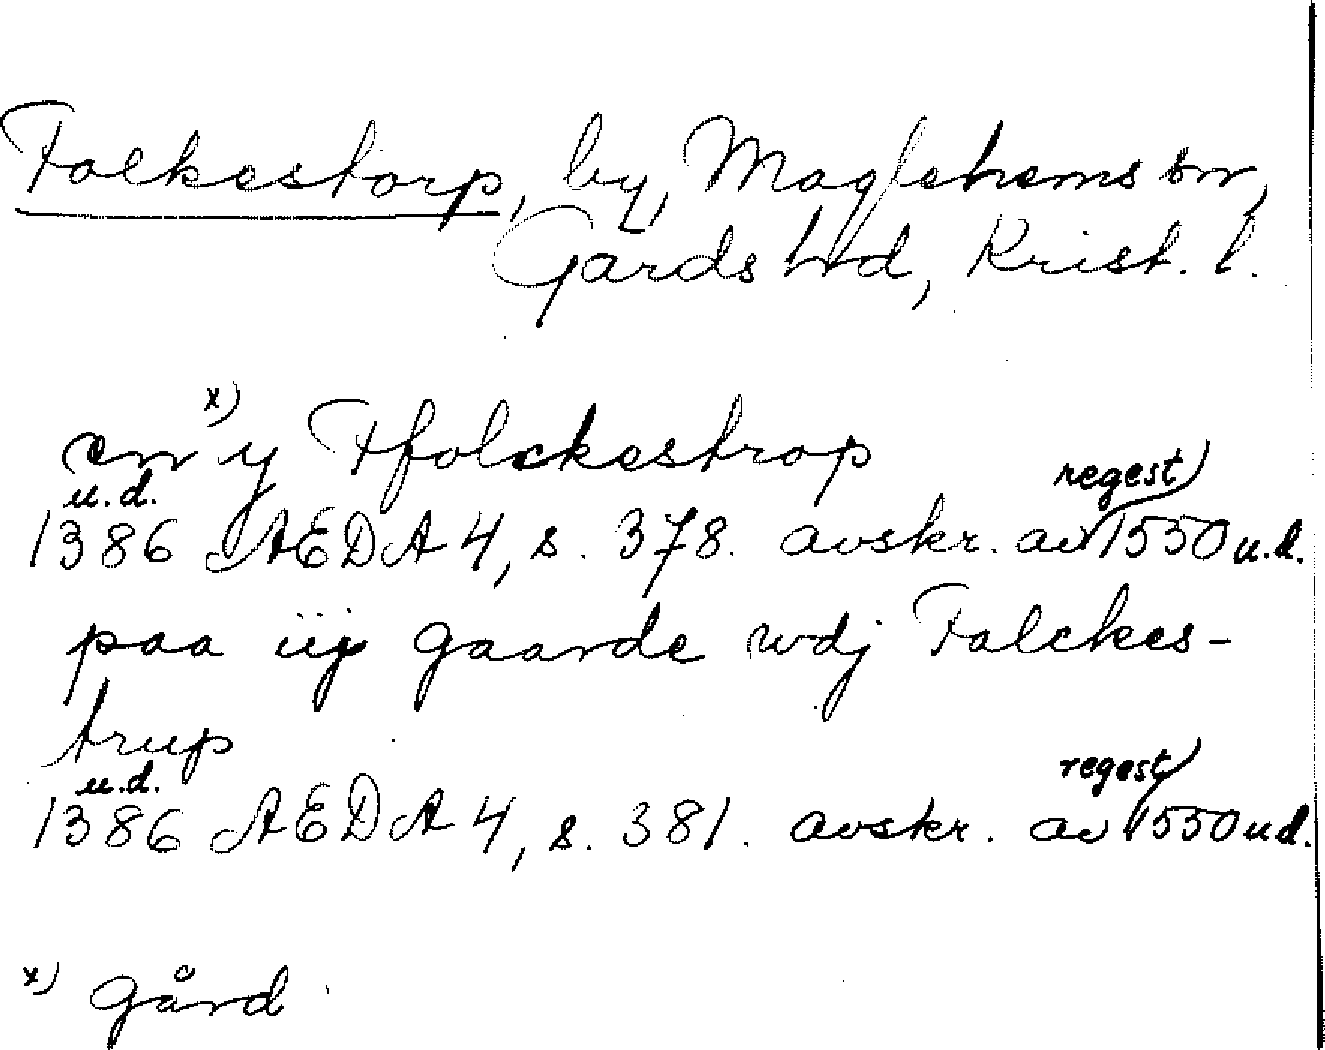 Folkestorp, by, Maglehems sn,
Gärds hd, Krist. l.
en x) y Ffolckestrop
u.d. regest
1386 AEDA 4, s. 378. avskr. av 1550 u.d.
paa iij gaarde wdj Falckes-
trup
u.d. regest
1386 AEDA 4, s. 381. avskr. av 1550 u.d.
x) gård